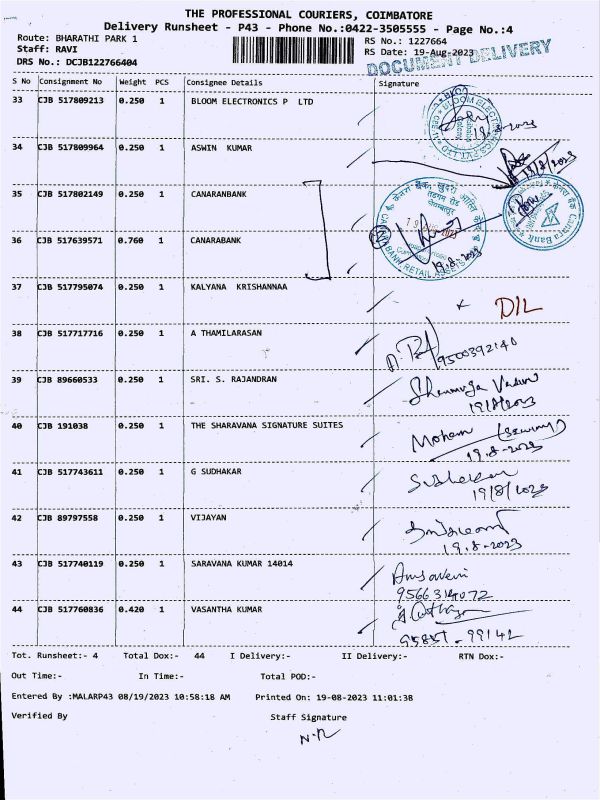 THE PROFESSIONAL COURIERS, COIMBATORE
Delivery Runsheet - P43 - Phone No.:0422-3505555 - Page No.:4
Route: BHARATHI PARK 1
Staff: RAVI
DRS No.: DCJB122766404
RS No.: 1227664
RS Date: 19-Aug-2023
DOCUMENT DELIVERY
S No Consignment No Weight PCS Consignee Details Signature
33 CJB 517809213 0.250 1 BLOOM ELECTRONICS P LTD
19-8-2023
34 CJB 517809964 0.250 1 ASWIN KUMAR
19/8/2023
35 CJB 517802149 0.250 1 CANARANBANK
Canara Bank
36 CJB 517639571 0.760 1 CANARABANK
19.8.2023
37 CJB 517795074 0.250 1 KALYANA KRISHNANAA
D/L
38 CJB 517717716 0.250 1 A THAMILARASAN
9500392140
39 CJB 89660533 0.250 1 SRI. S. RAJANDRAN
19/8/2023
40 CJB 191038 0.250 1 THE SHARAVANA SIGNATURE SUITES
Mohan
19.8.2023
41 CJB 517743611 0.250 1 G SUDHAKAR
19/8/2023
42 CJB 89797558 0.250 1 VIJAYAN
19.8.2023
43 CJB 517740119 0.250 1 SARAVANA KUMAR 14014
44 CJB 517760836 0.420 1 VASANTHA KUMAR
Tot. Runsheet:- 4 Total Dox:- 44 I Delivery:- II Delivery:- RTN Dox:-
Out Time:- In Time:- Total POD:-
Entered By :MALARP43 08/19/2023 10:58:18 AM Printed On: 19-08-2023 11:01:38
Verified By Staff Signature